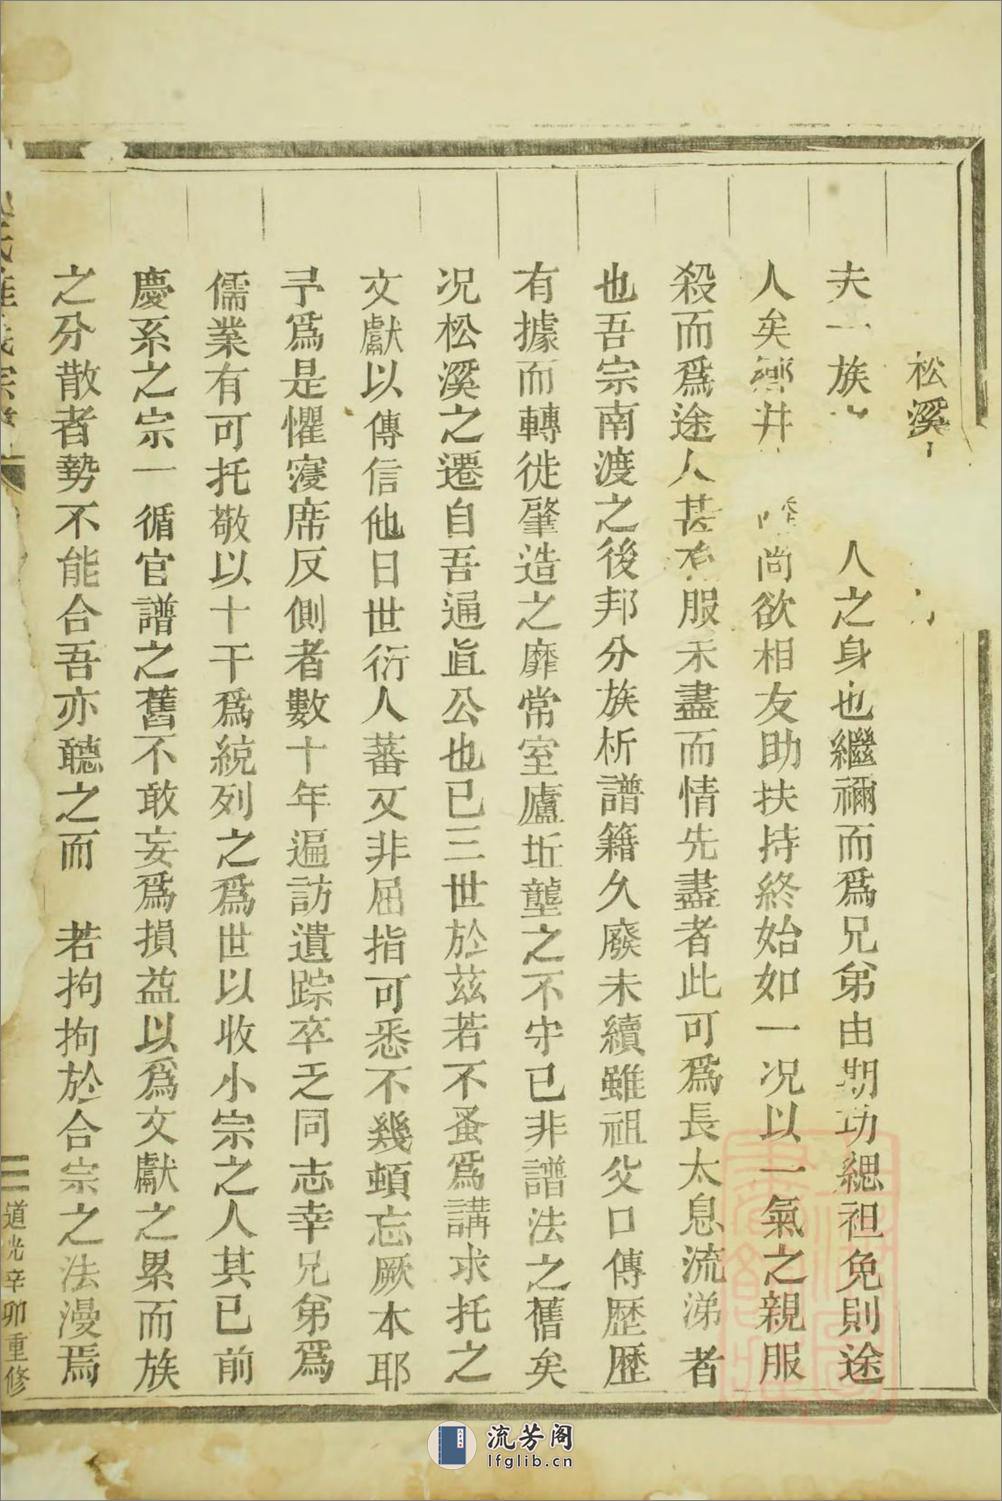 松溪
夫一族人之身也繼禰而爲兄弟由期功緦袒免則途
人矣鄉井尚欲相友助扶持終始如一况以一氣之親服
殺而爲途人甚有服未盡而情先盡者此可爲長太息流涕者
也吾宗南渡之後邦分族析譜籍久廢未續雖祖父口傳歷歷
有據而轉徙肇造之靡常室廬坵壟之不守已非譜法之舊矣
况松溪之遷自吾通真公也已三世於茲若不蚤爲講求托之
文獻以傳信他日世衍人蕃又非屈指可悉不幾頓忘厥本耶
予爲是懼寢席反側者數十年遍訪遺踪卒乏同志幸兄弟爲
儒業有可托敬以十干爲統列之爲世以收小宗之人其已前
慶系之宗一循官譜之舊不敢妄爲損益以爲文獻之累而族
之分散者勢不能合吾亦聽之而 若拘拘於合宗之法漫焉
道光辛卯重修
流芳阁
lfglib.cn